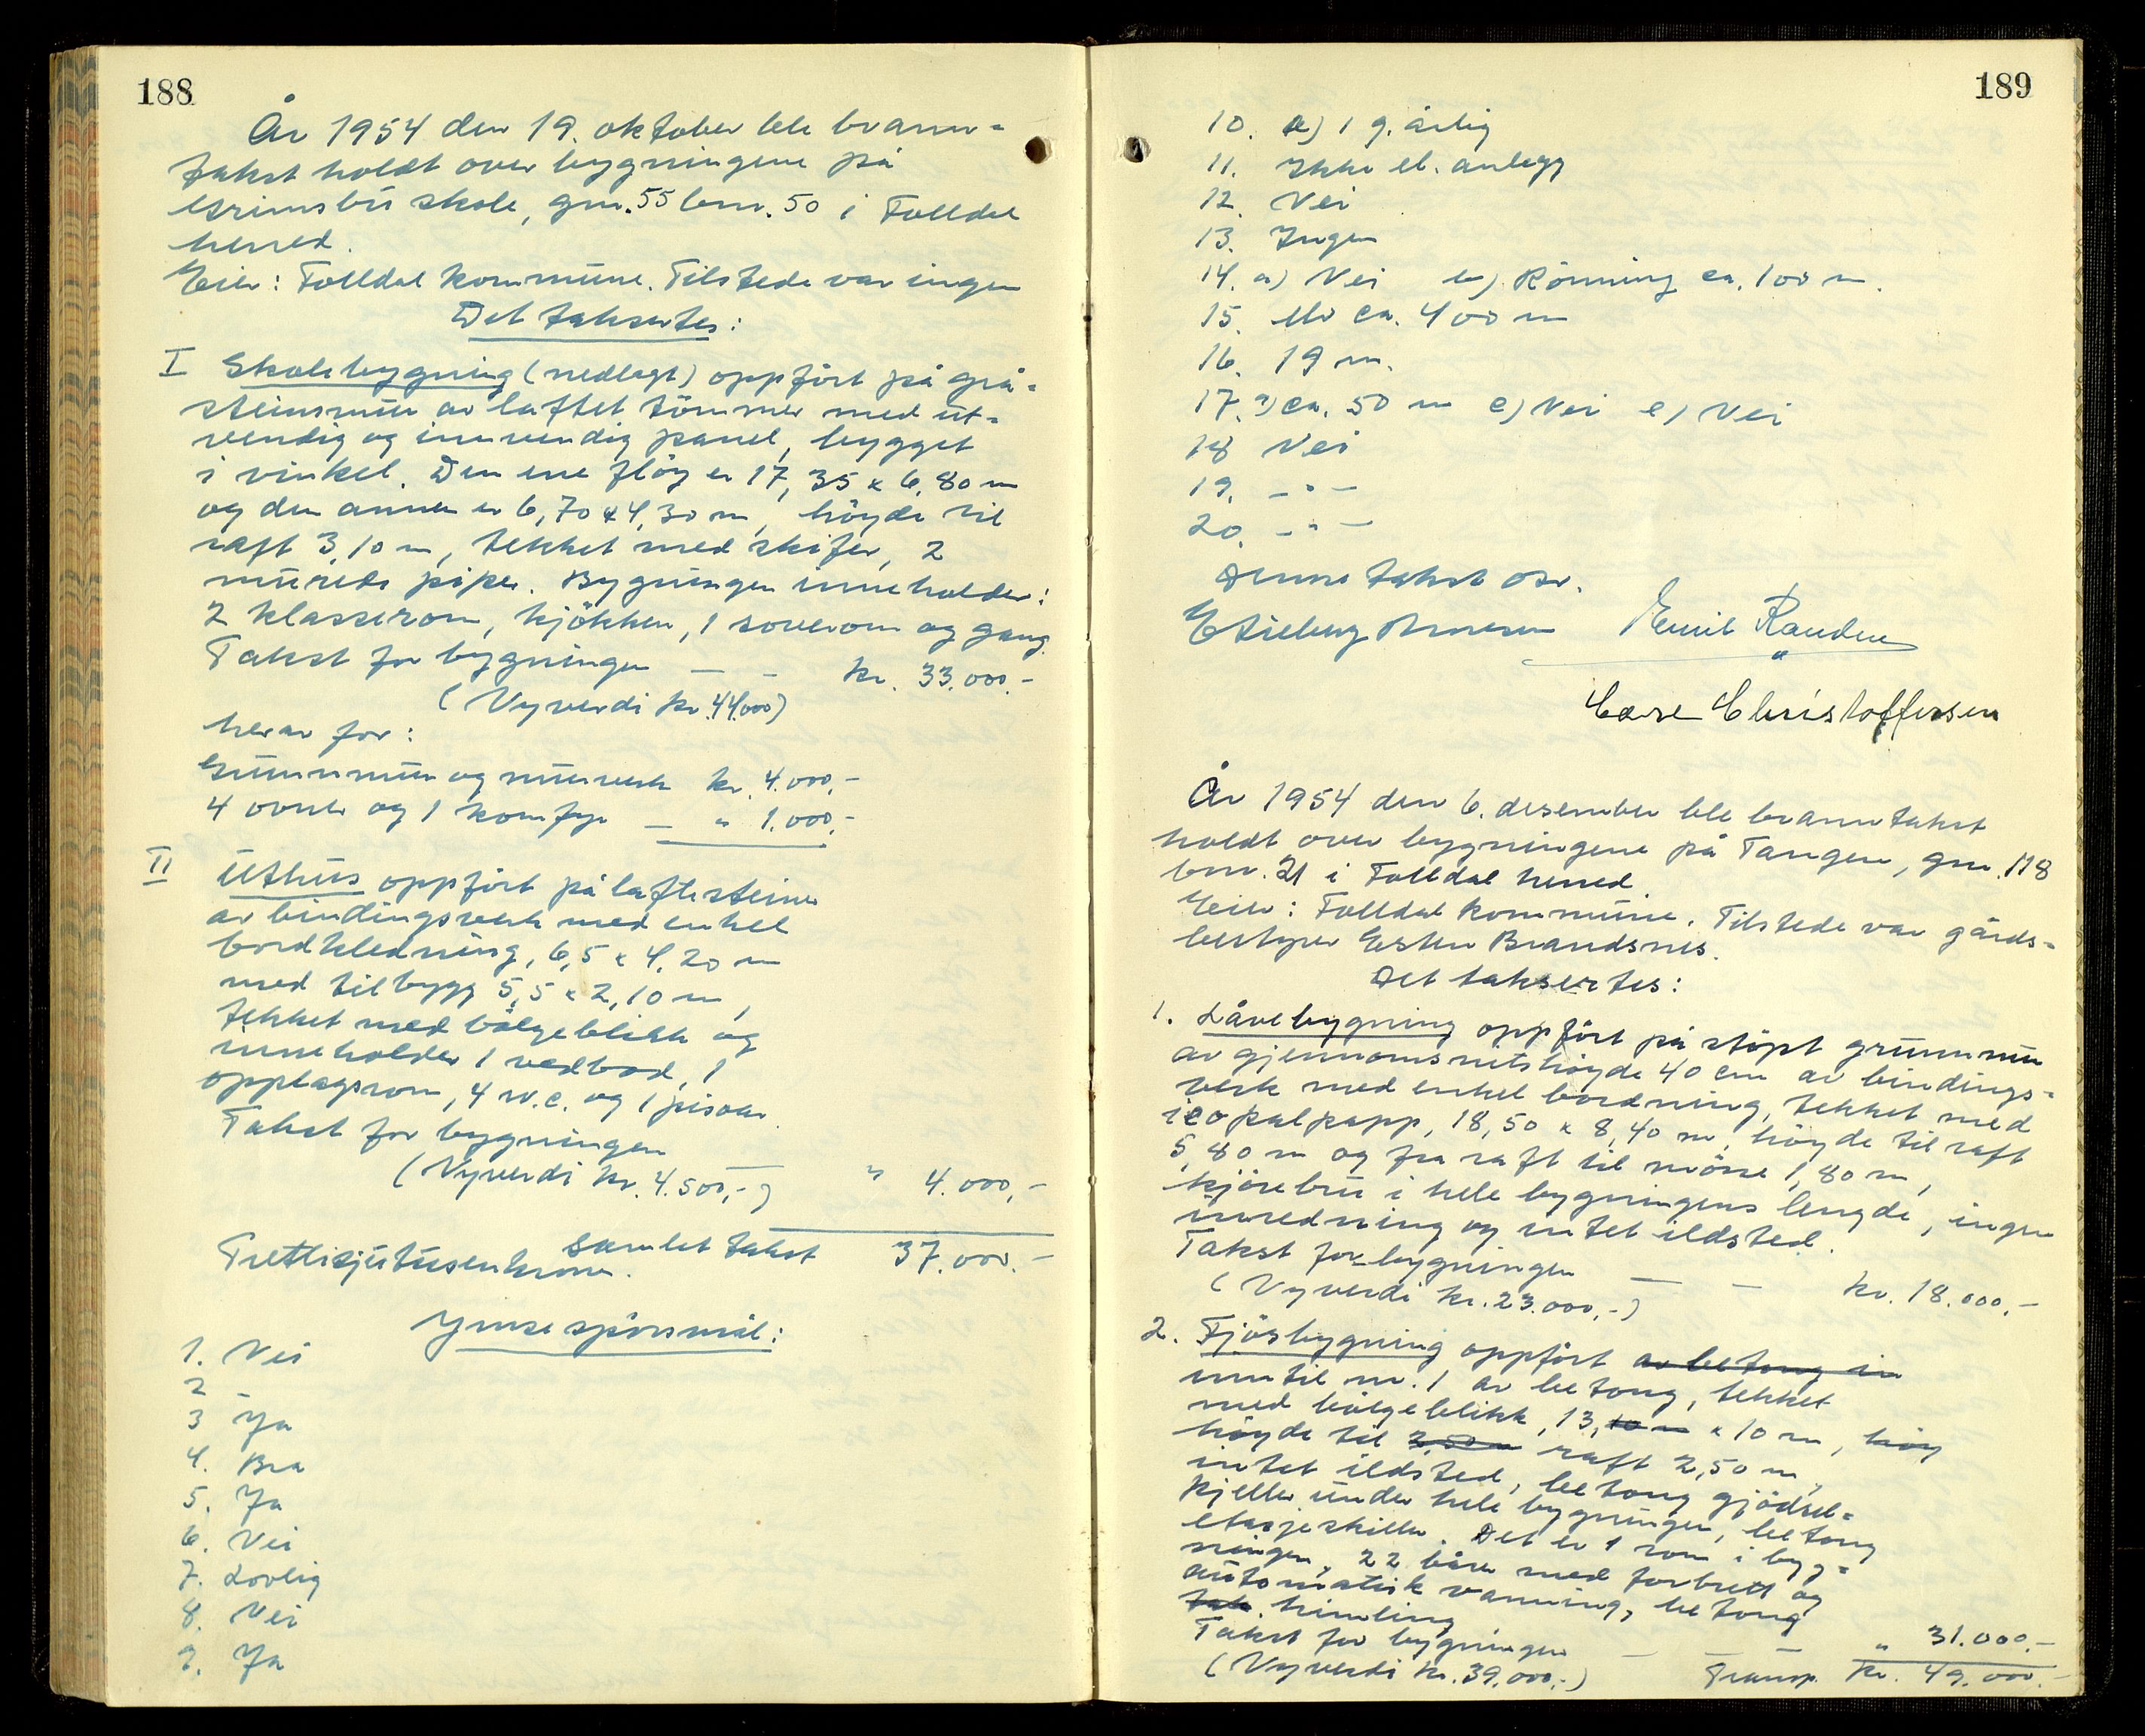 188
År 1954 den 19. oktober ble brann=
takst holdt over bygningene på
Grimsbu skole, gnr. 55 bnr. 50 i Folldal
herred.
Eier: Folldal kommune. Tilstede var ingen
Det taksertes:
I Skolebygning (nedlagt) oppført på grå=
steinsmur av laftet tømmer med ut=
vendig og innvendig panel, bygget
i vinkel. Den ene fløy er 17,35 x 6,80 m
og den annen er 6,70 x 4,30 m, høyde til
raft 3,10 m, tekket med skifer, 2
murede piper. Bygningen inneholder:
2 klasserom, kjøkken, 1 soverom og gang.
Takst for bygningen — — kr. 33.000.-
(Nyverdi kr. 44.000)
herav for:
Grunnmur og murverk kr. 4.000,-
4 ovner og 1 komfyr — " 1.000,-
II Uthus oppført på laftesteiner
av bindingsverk med enkel
bordkledning, 6,5 x 4,20 m
med tilbygg 5,5 x 2,10 m,
tekket med bølgeblikk og
inneholder 1 vedbod, 1
opplagsrom, 4 w.c. og 1 pissoar.
Takst for bygningen
(Nyverdi kr. 4.500,-) " 4.000,-
Samlet takst 37.000.-
Trettisjutusenkroner.
Ymse spørsmål:
1. Nei
2 -
3 Ja
4. Bra
5. Ja
6. Nei
7. Lovlig
8. Nei
9. Ja
189
10. a) 1 g. årlig
11. Ikke el. anlegg
12. Nei
13. Ingen
14. a) Nei b) Rønning ca. 100 m.
15. Mo ca. 400 m
16. 19 m.
17. a) ca. 50 m c) Nei e) Nei
18 Nei
19. - " -
20. - " -
Denne takst osv.
Emil Randen
Christoffersen
År 1954 den 6. desember ble branntakst
holdt over bygningene på Tangen, gnr. 118
bnr. 21 i Folldal herred.
Eier: Folldal kommune. Tilstede var gårds=
bestyrer Esten Brandsnes.
Det taksertes:
1. Låvebygning oppført på støpt grunnmur
av gjennomsnitshøyde 40 cm av bindings=
verk med enkel bordning, tekket med
icopalpapp, 18,50 x 8,40 m, høyde til raft
5,80 m og fra raft til møne 1,80 m,
kjørebru i hele bygningens lengde, ingen
innredning og intet ildsted.
Takst for bygningen — — kr. 18.000,-
(Nyverdi kr. 23.000,-)
2. Fjøsbygning oppført av betong in
inntil nr. 1 av betong, tekket
med bølgeblikk, 13,10 m x 10 m, høy
høyde til 2,50 m raft 2,50 m,
intet ildsted, betong gjødsel=
kjeller under hele bygningen, betong
etasjeskiller. Det er 1 rom i byg=
ningen, 22 båser med forbrett og
automatisk vanning, betong
tak. himling
Takst for bygningen — — " 31.000.-
(Nyverdi kr. 39.000,-) Transp. kr. 49.000.-